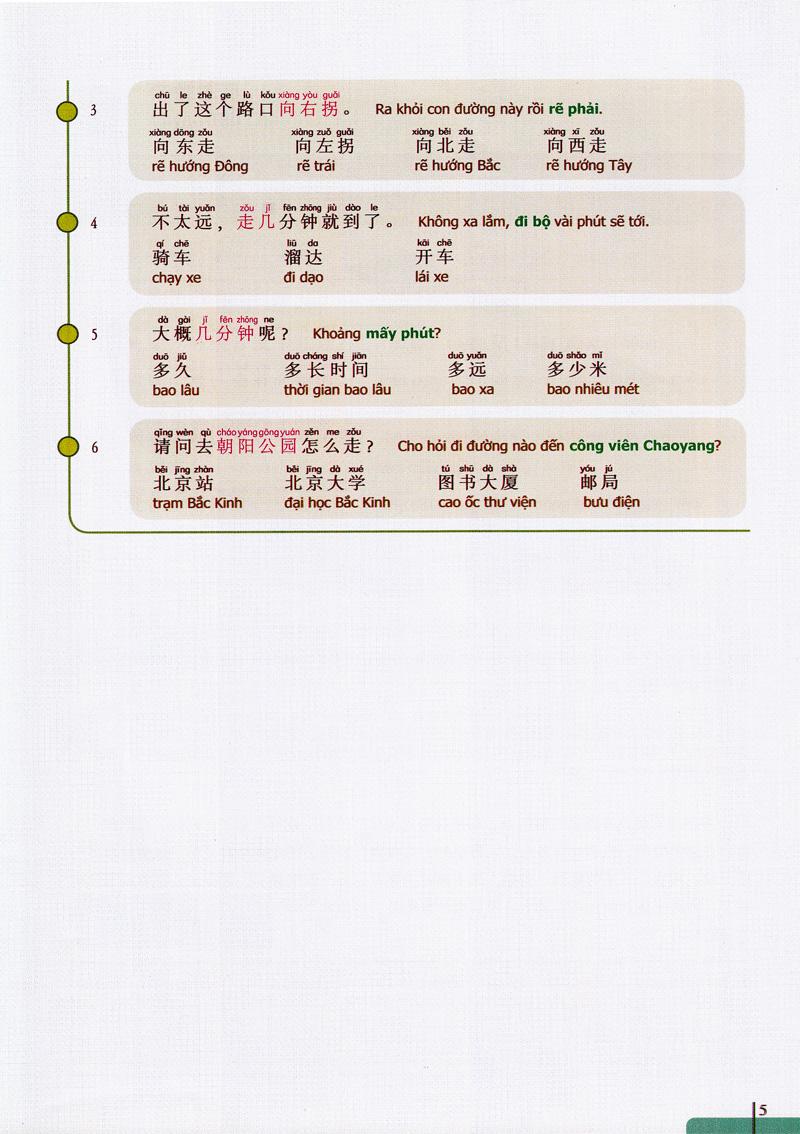 chū le zhè ge lù kǒu xiàng yòu guǎi
3 出了这个路口向右拐。 Ra khỏi con đường này rồi rẽ phải.
xiàng dōng zǒu xiàng zuǒ guǎi xiàng běi zǒu xiàng xī zǒu
向东走 向左拐 向北走 向西走
rẽ hướng Đông rẽ trái rẽ hướng Bắc rẽ hướng Tây
bú tài yuǎn zǒu jǐ fēn zhōng jiù dào le
4 不太远，走几分钟就到了。 Không xa lắm, đi bộ vài phút sẽ tới.
qí chē liū da kāi chē
骑车 溜达 开车
chạy xe đi dạo lái xe
dà gài jǐ fēn zhōng ne
5 大概几分钟呢? Khoảng mấy phút?
duō jiǔ duō cháng shí jiān duō yuǎn duō shǎo mǐ
多久 多长时间 多远 多少米
bao lâu thời gian bao lâu bao xa bao nhiêu mét
qǐng wèn qù cháo yáng gōng yuán zěn me zǒu
6 请问去朝阳公园怎么走? Cho hỏi đi đường nào đến công viên Chaoyang?
běi jīng zhàn běi jīng dà xué tú shū dà shà yóu jú
北京站 北京大学 图书大厦 邮局
trạm Bắc Kinh đại học Bắc Kinh cao ốc thư viện bưu điện
5